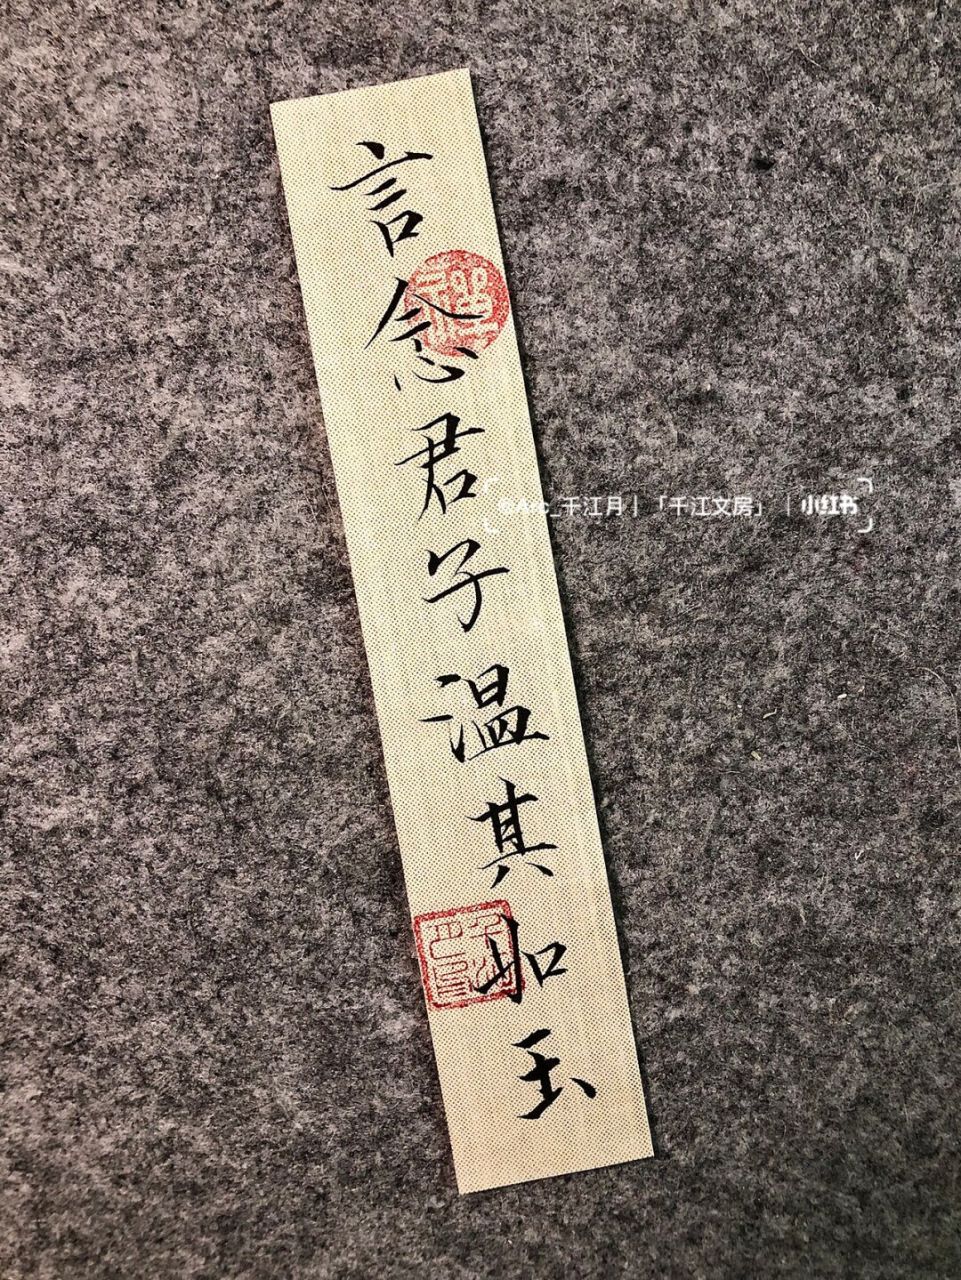 言念君子温其如玉
千江月｜「千江文房」｜小红书